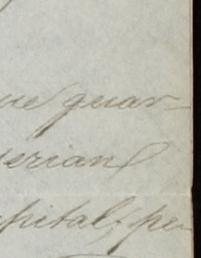 ue guar-
erian
pital, per